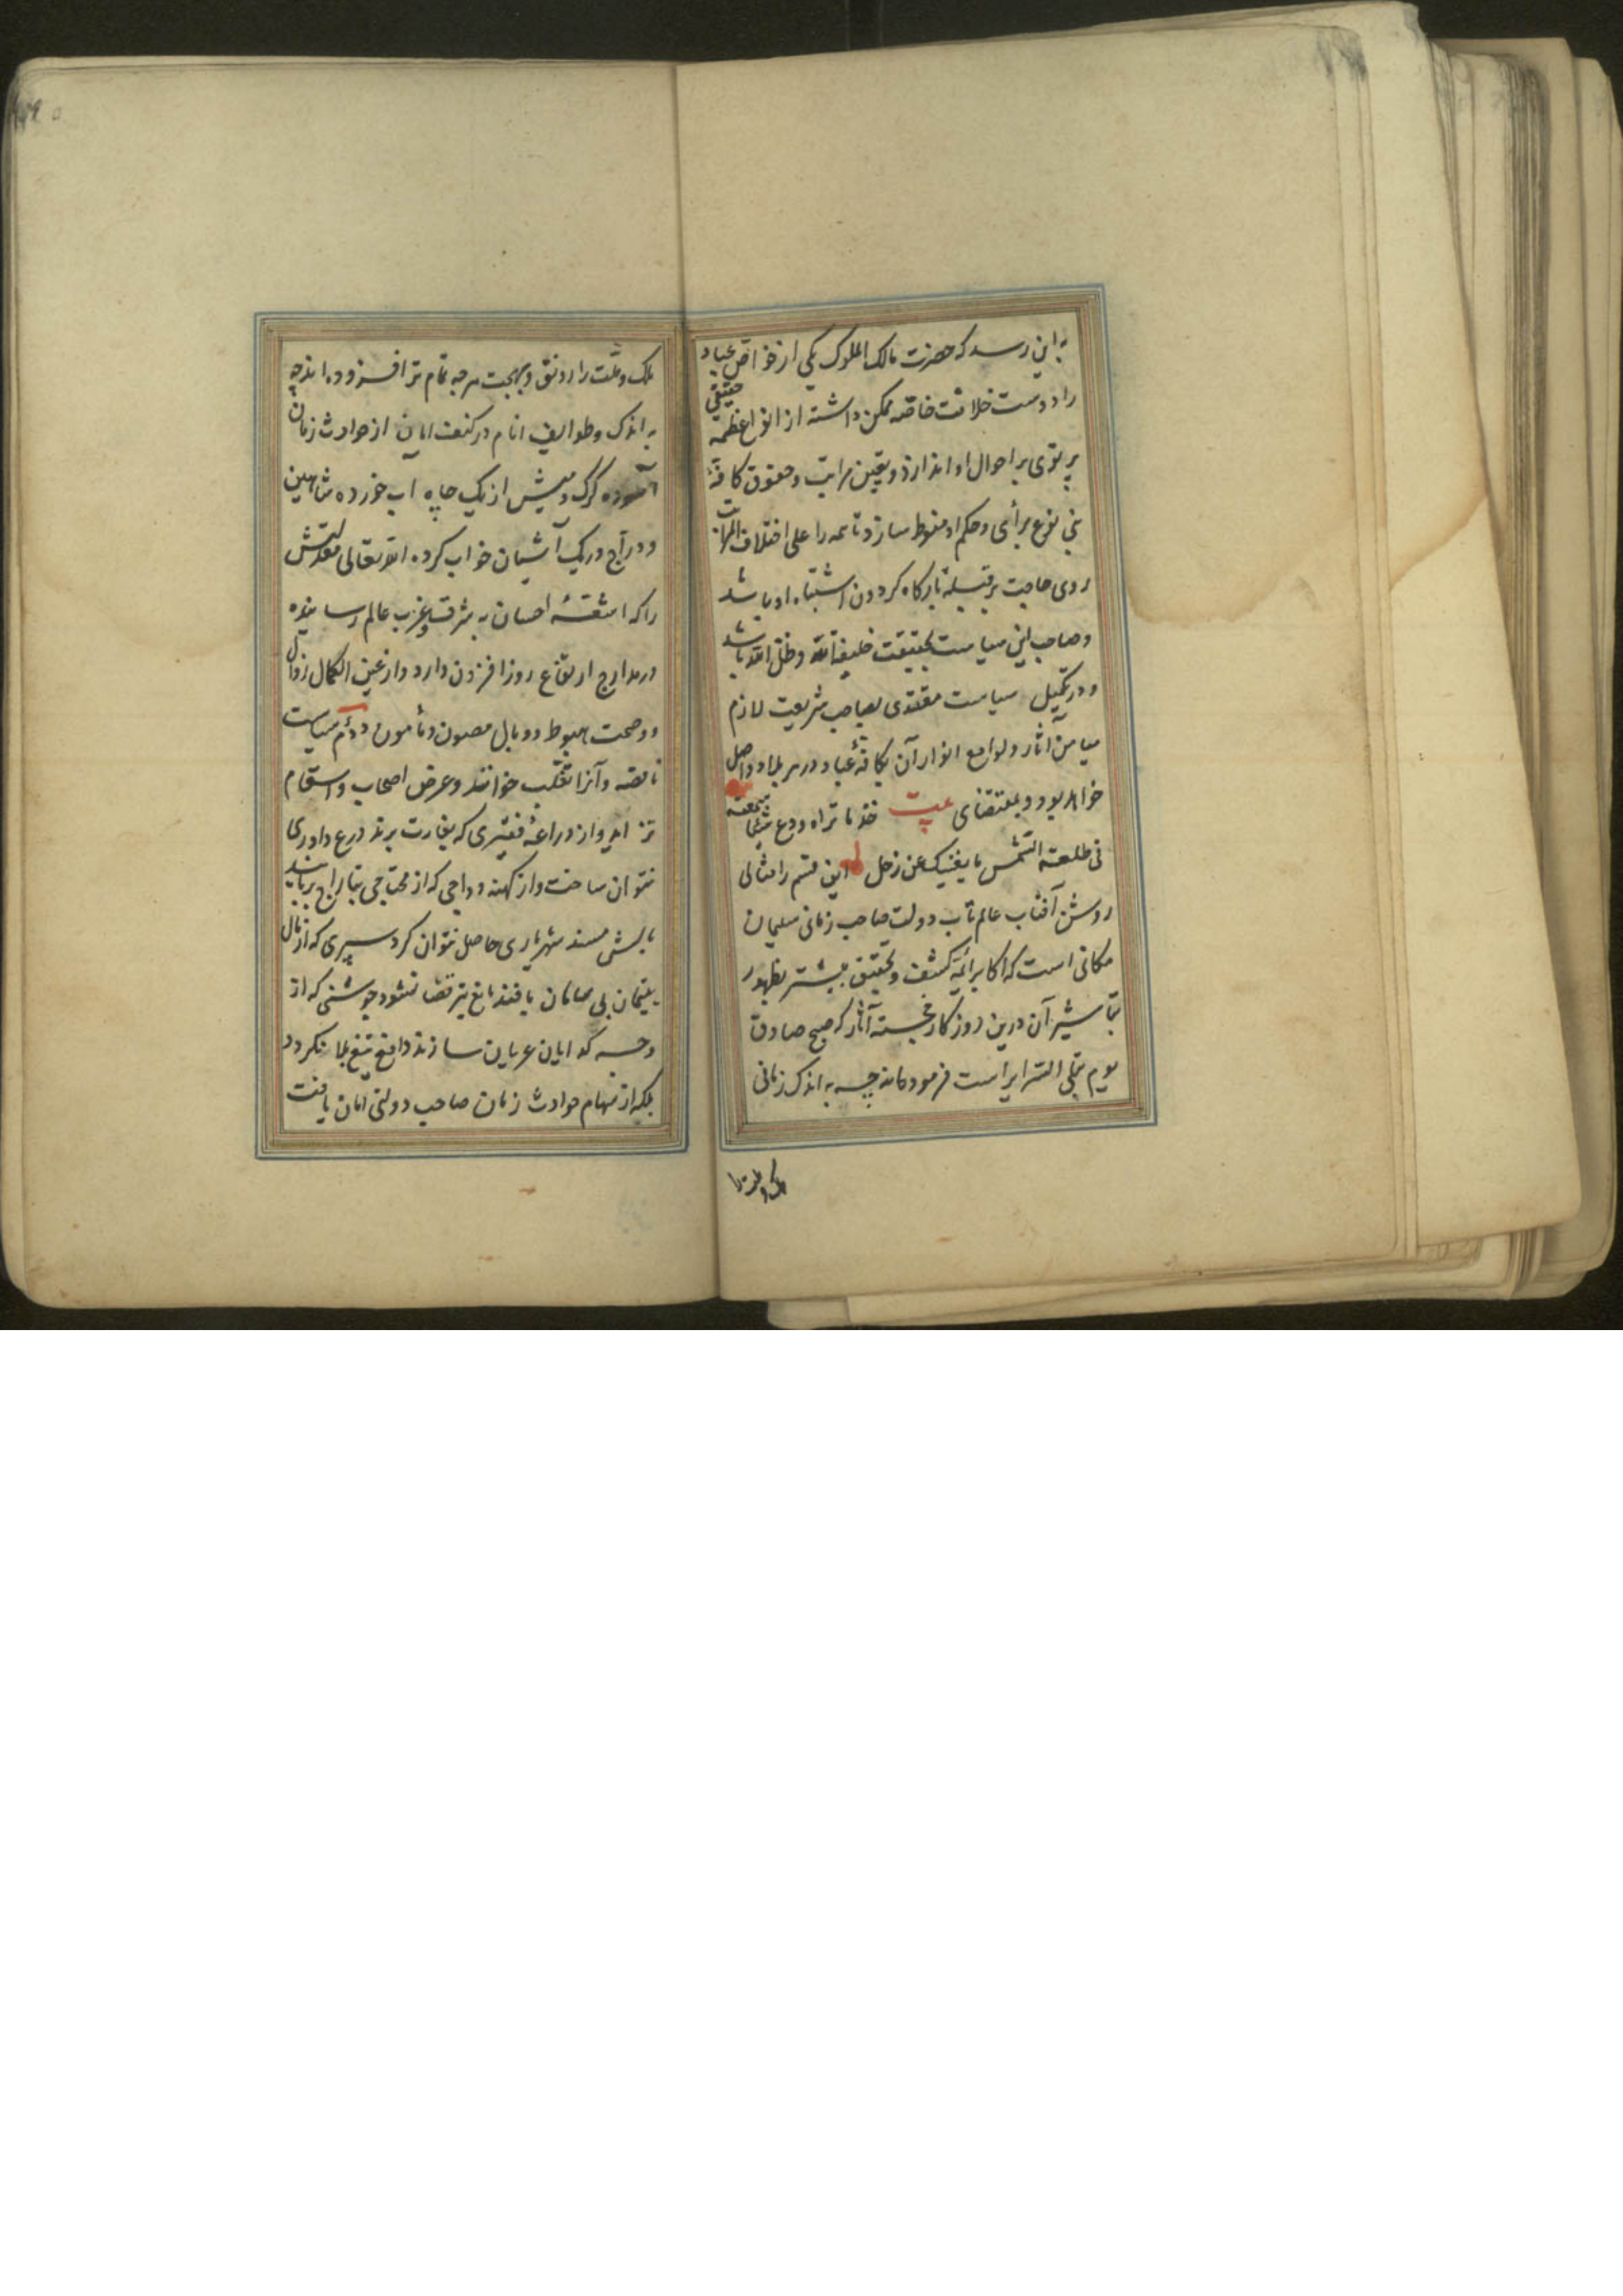 به این رسد که حضرت مالک الملوک یکی از خواص عباد
را دوست خلافت خاصه ممکن داشته از انوار عظمت حقیقی
پرتوی بر احوال او اندازد و یقین مراتب و حقوق کافهٔ
بنی نوع برأی و حکم او منوط سازد تا همه را علی اختلاف المراتب
روی حاجت بر قبیله بارگاه گردون اشتباه او باشد
و صاحب این سیاست بحقیقت خلیفة الله و ظل الله باشد
و در تکمیل سیاست مقتدی بصاحب شریعت لازم
میامن آثار و لوامع انوار آن بکافهٔ عباد در هر بلاد واصل
خواهد بود و بمقتضای بیت خذ ما تراه و دع شیئا سمعته
فی طلعة الشمس ما یغنیک عن زحل این قسم را مثالی
روشن آفتاب عالم تاب دولت صاحب زمانی سلیمان
مکانی است که اکابر ائمه کشف و تحقیق بیشتر بظهور
تباشیر آن درین روزگار خجسته آثار که صبح صادق
یوم تبلی السرایر است فرموده‌اند چه به اندک زمانی
ملک و ملت را
ملک و ملت را رونق و بهجت هر چه تمام تر افزوده اند چه
به اندک و طوایف انام در کنف امان از حوادث زمان
آسوده گرگ و میش از یک چاه اب خورده شاهین
و دراج در یک آشیان خواب کرده الله تعالی معدلتش
را که اشعهٔ احسان به شرق و غرب عالم رسانیده
در مدارج ارتفاع روز افزون دارد و از عین الکمال زوال
و وصمت هبوط و وبال مصون و مأمون دوم سیاست
ناقصه و آنرا تغلب خوانند و غرض اصحاب و استقام
نزاید و از دراعهٔ فقیری که بغارت برند درع داوری
نتوان ساخت و از کهنه دواجی که از محتاجی بتاراج بربایند
بالش مسند شهریاری حاصل نتوان کرد سپری که از مال
یتیمان بی سامان یافند مانع تیر قضا نشود جوشنی که از
وجه گدایان عریان سازند دافع تیغ بلا نگردد
بلکه از سهام حوادث زمان صاحب دولتی امان یافت